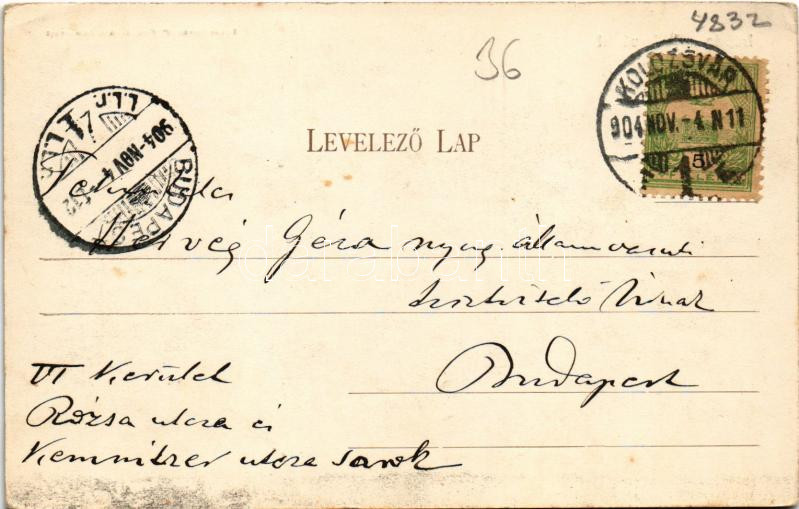 4832
36
KOLOZSVÁR
904 NOV. -4. N 11
5
BUDAPEST
904 NOV 4
LEVELEZŐ LAP
Géza nyug államvasuti
Budapest
VI Kerület
Rózsa utcza és
utcza sarok